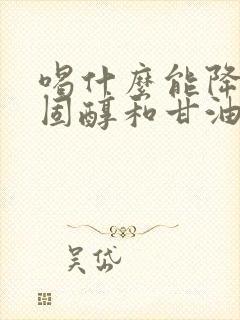 喝什麼能降
固醇和甘油
吴岱